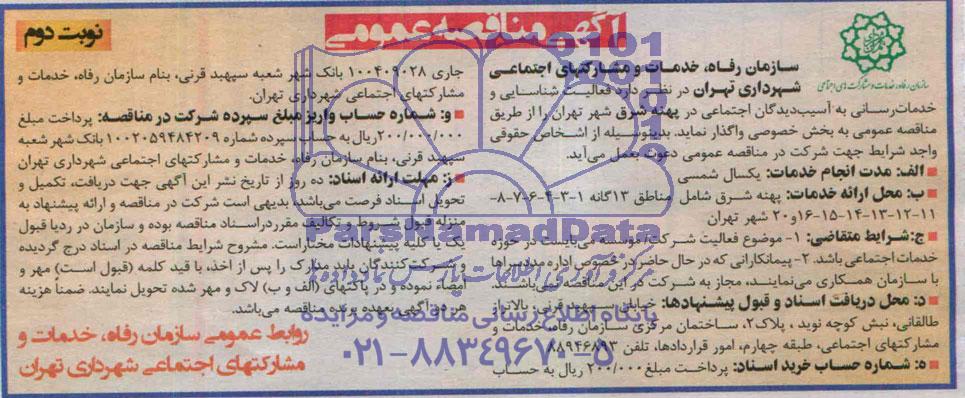 آگهی مناقصه عمومی
نوبت دوم
سازمان رفاه، خدمات و مشارکتهای اجتماعی شهرداری تهران
سازمان رفاه، خدمات و مشارکتهای اجتماعی
شهرداری تهران در نظر دارد فعالیت شناسایی و
خدمات‌رسانی به آسیب‌دیدگان اجتماعی در پهنه شرق شهر تهران را از طریق
مناقصه عمومی به بخش خصوصی واگذار نماید. بدینوسیله از اشخاص حقوقی
واجد شرایط جهت شرکت در مناقصه عمومی دعوت بعمل می‌آید.
الف: مدت انجام خدمات: یکسال شمسی
ب: محل ارائه خدمات: پهنه شرق شامل مناطق ۱۳گانه ۱-۳-۴-۶-۷-۸-
۱۱-۱۲-۱۳-۱۴-۱۵-۱۶و۲۰ شهر تهران
ج: شرایط متقاضی: ۱- موضوع فعالیت شرکت/موسسه می‌بایست در حوزه
خدمات اجتماعی باشد. ۲- پیمانکارانی که در حال حاضر در خصوص اداره مددسراها
با سازمان همکاری می‌نمایند، مجاز به شرکت در این مناقصه نمی‌باشند.
د: محل دریافت اسناد و قبول پیشنهادها: خیابان سپهبد قرنی، بالاتر از
طالقانی، نبش کوچه نوید ، پلاک۲، ساختمان مرکزی سازمان رفاه، خدمات و
مشارکتهای اجتماعی، طبقه چهارم، امور قراردادها، تلفن ۸۸۹۴۶۸۹۳
ه: شماره حساب خرید اسناد: پرداخت مبلغ ۲۰۰/۰۰۰ ریال به حساب
جاری ۱۰۰۴۰۹۰۲۸ بانک شهر شعبه سپهبد قرنی، بنام سازمان رفاه، خدمات و
مشارکتهای اجتماعی شهرداری تهران.
و: شماره حساب واریز مبلغ سپرده شرکت در مناقصه: پرداخت مبلغ
۲۰۰/۰۰۰/۰۰۰ریال به حساب سپرده شماره ۱۰۰۲۰۵۹۴۸۴۲۰۹ بانک شهر شعبه
سپهبد قرنی، بنام سازمان رفاه، خدمات و مشارکتهای اجتماعی شهرداری تهران
ز: مهلت ارائه اسناد: ده روز از تاریخ نشر این آگهی جهت دریافت، تکمیل و
تحویل اسناد فرصت می‌باشد. بدیهی است شرکت در مناقصه و ارائه پیشنهاد به
منزله قبول شروط و تکالیف مقرر در اسناد مناقصه بوده و سازمان در رد یا قبول
یک یا کلیه پیشنهادات مختار است. مشروح شرایط مناقصه در اسناد درج گردیده
و شرکت‌کنندگان باید مدارک را پس از اخذ، با قید کلمه (قبول است) مهر و
امضاء نموده و در پاکتهای (الف و ب) لاک و مهر شده تحویل نمایند. ضمناً هزینه
هر دو آگهی بعهده برنده مناقصه می‌باشد.
روابط عمومی سازمان رفاه، خدمات و
مشارکتهای اجتماعی شهرداری تهران
ParsNamadData
مرکز فرآوری اطلاعات پارس نماد داده ها
پایگاه اطلاع رسانی مناقصه و مزایده
۰۲۱-۸۸۳۴۹۶۷۰-۵